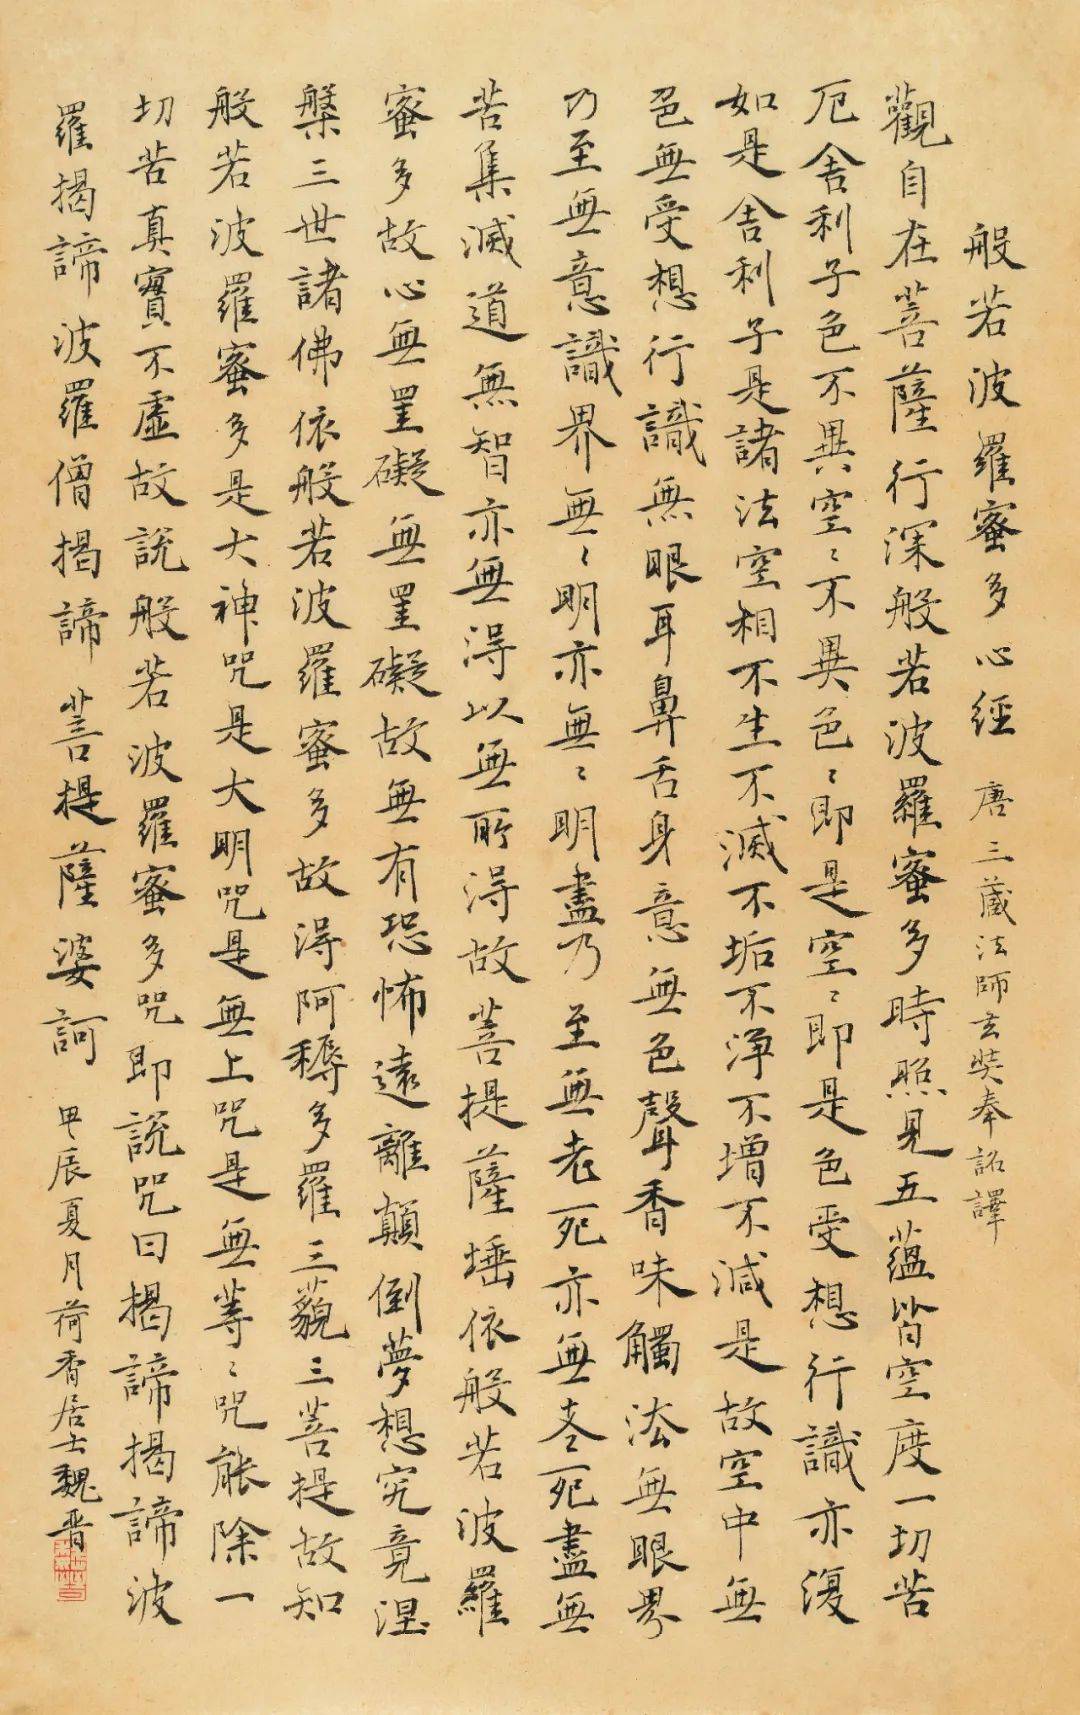 般若波羅蜜多心經 唐三藏法師玄奘奉詔譯
觀自在菩薩行深般若波羅蜜多時照見五蘊皆空度一切苦
厄舍利子色不異空〻不異色〻即是空〻即是色受想行識亦復
如是舍利子是諸法空相不生不滅不垢不淨不增不減是故空中無
色無受想行識無眼耳鼻舌身意無色聲香味觸法無眼界
乃至無意識界無〻明亦無〻明盡乃至無老死亦無老死盡無
苦集滅道無智亦無得以無所得故菩提薩埵依般若波羅
蜜多故心無罣礙無罣礙故無有恐怖遠離顛倒夢想究竟涅
槃三世諸佛依般若波羅蜜多故得阿耨多羅三藐三菩提故知
般若波羅蜜多是大神咒是大明咒是無上咒是無等〻咒能除一
切苦真實不虛故說般若波羅蜜多咒即說咒曰揭諦揭諦波
羅揭諦波羅僧揭諦菩提薩婆訶 甲辰夏月荷香居士魏晋